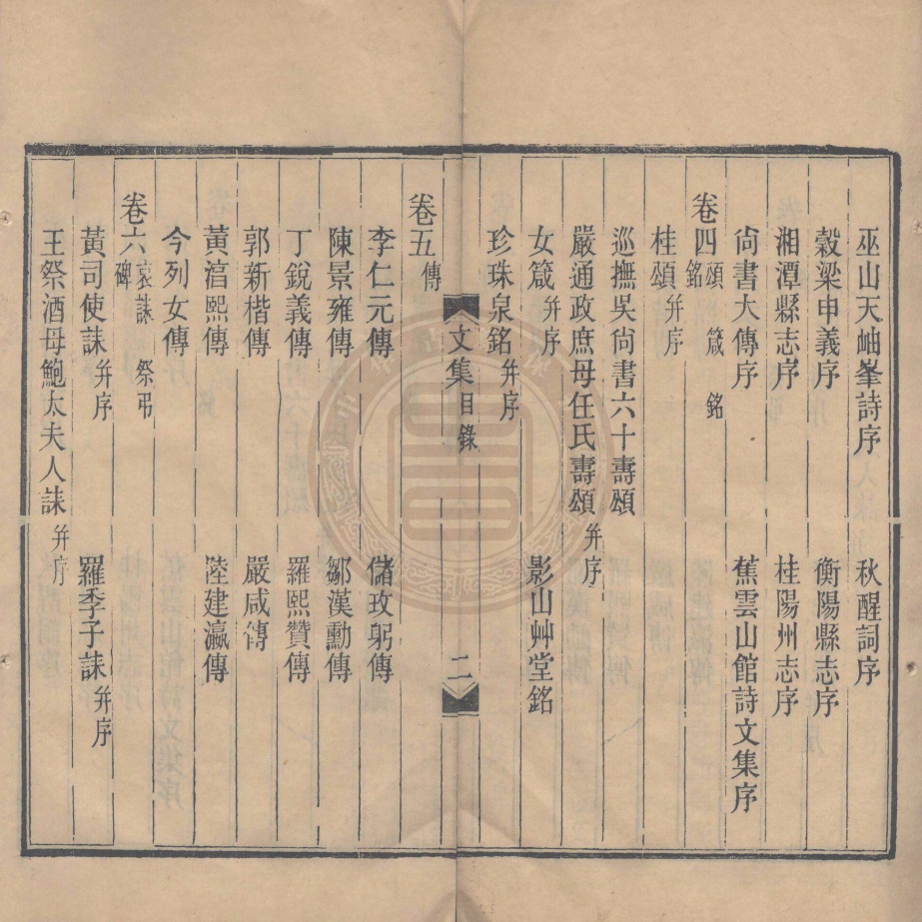 巫山天岫峯詩序 秋醒詞序
穀梁申義序 衡陽縣志序
湘潭縣志序 桂陽州志序
尙書大傳序 蕉雲山館詩文集序
卷四 頌 箴 銘 銘
桂頌 幷序
巡撫吳尙書六十壽頌
嚴通政庶母任氏壽頌 幷序
女箴 幷序 影山艸堂銘
珍珠泉銘 幷序
文集 目錄 二
卷五 傳
李仁元傳 儲玫躬傳
陳景雍傳 鄒漢勳傳
丁銳義傳 羅熙贊傳
郭新楷傳 嚴咸傳
黃淯熙傳 陸建瀛傳
今列女傳
卷六 哀誄 祭弔 碑
黃司使誄 幷序 羅季子誄 幷序
王祭酒母鮑太夫人誄 幷序